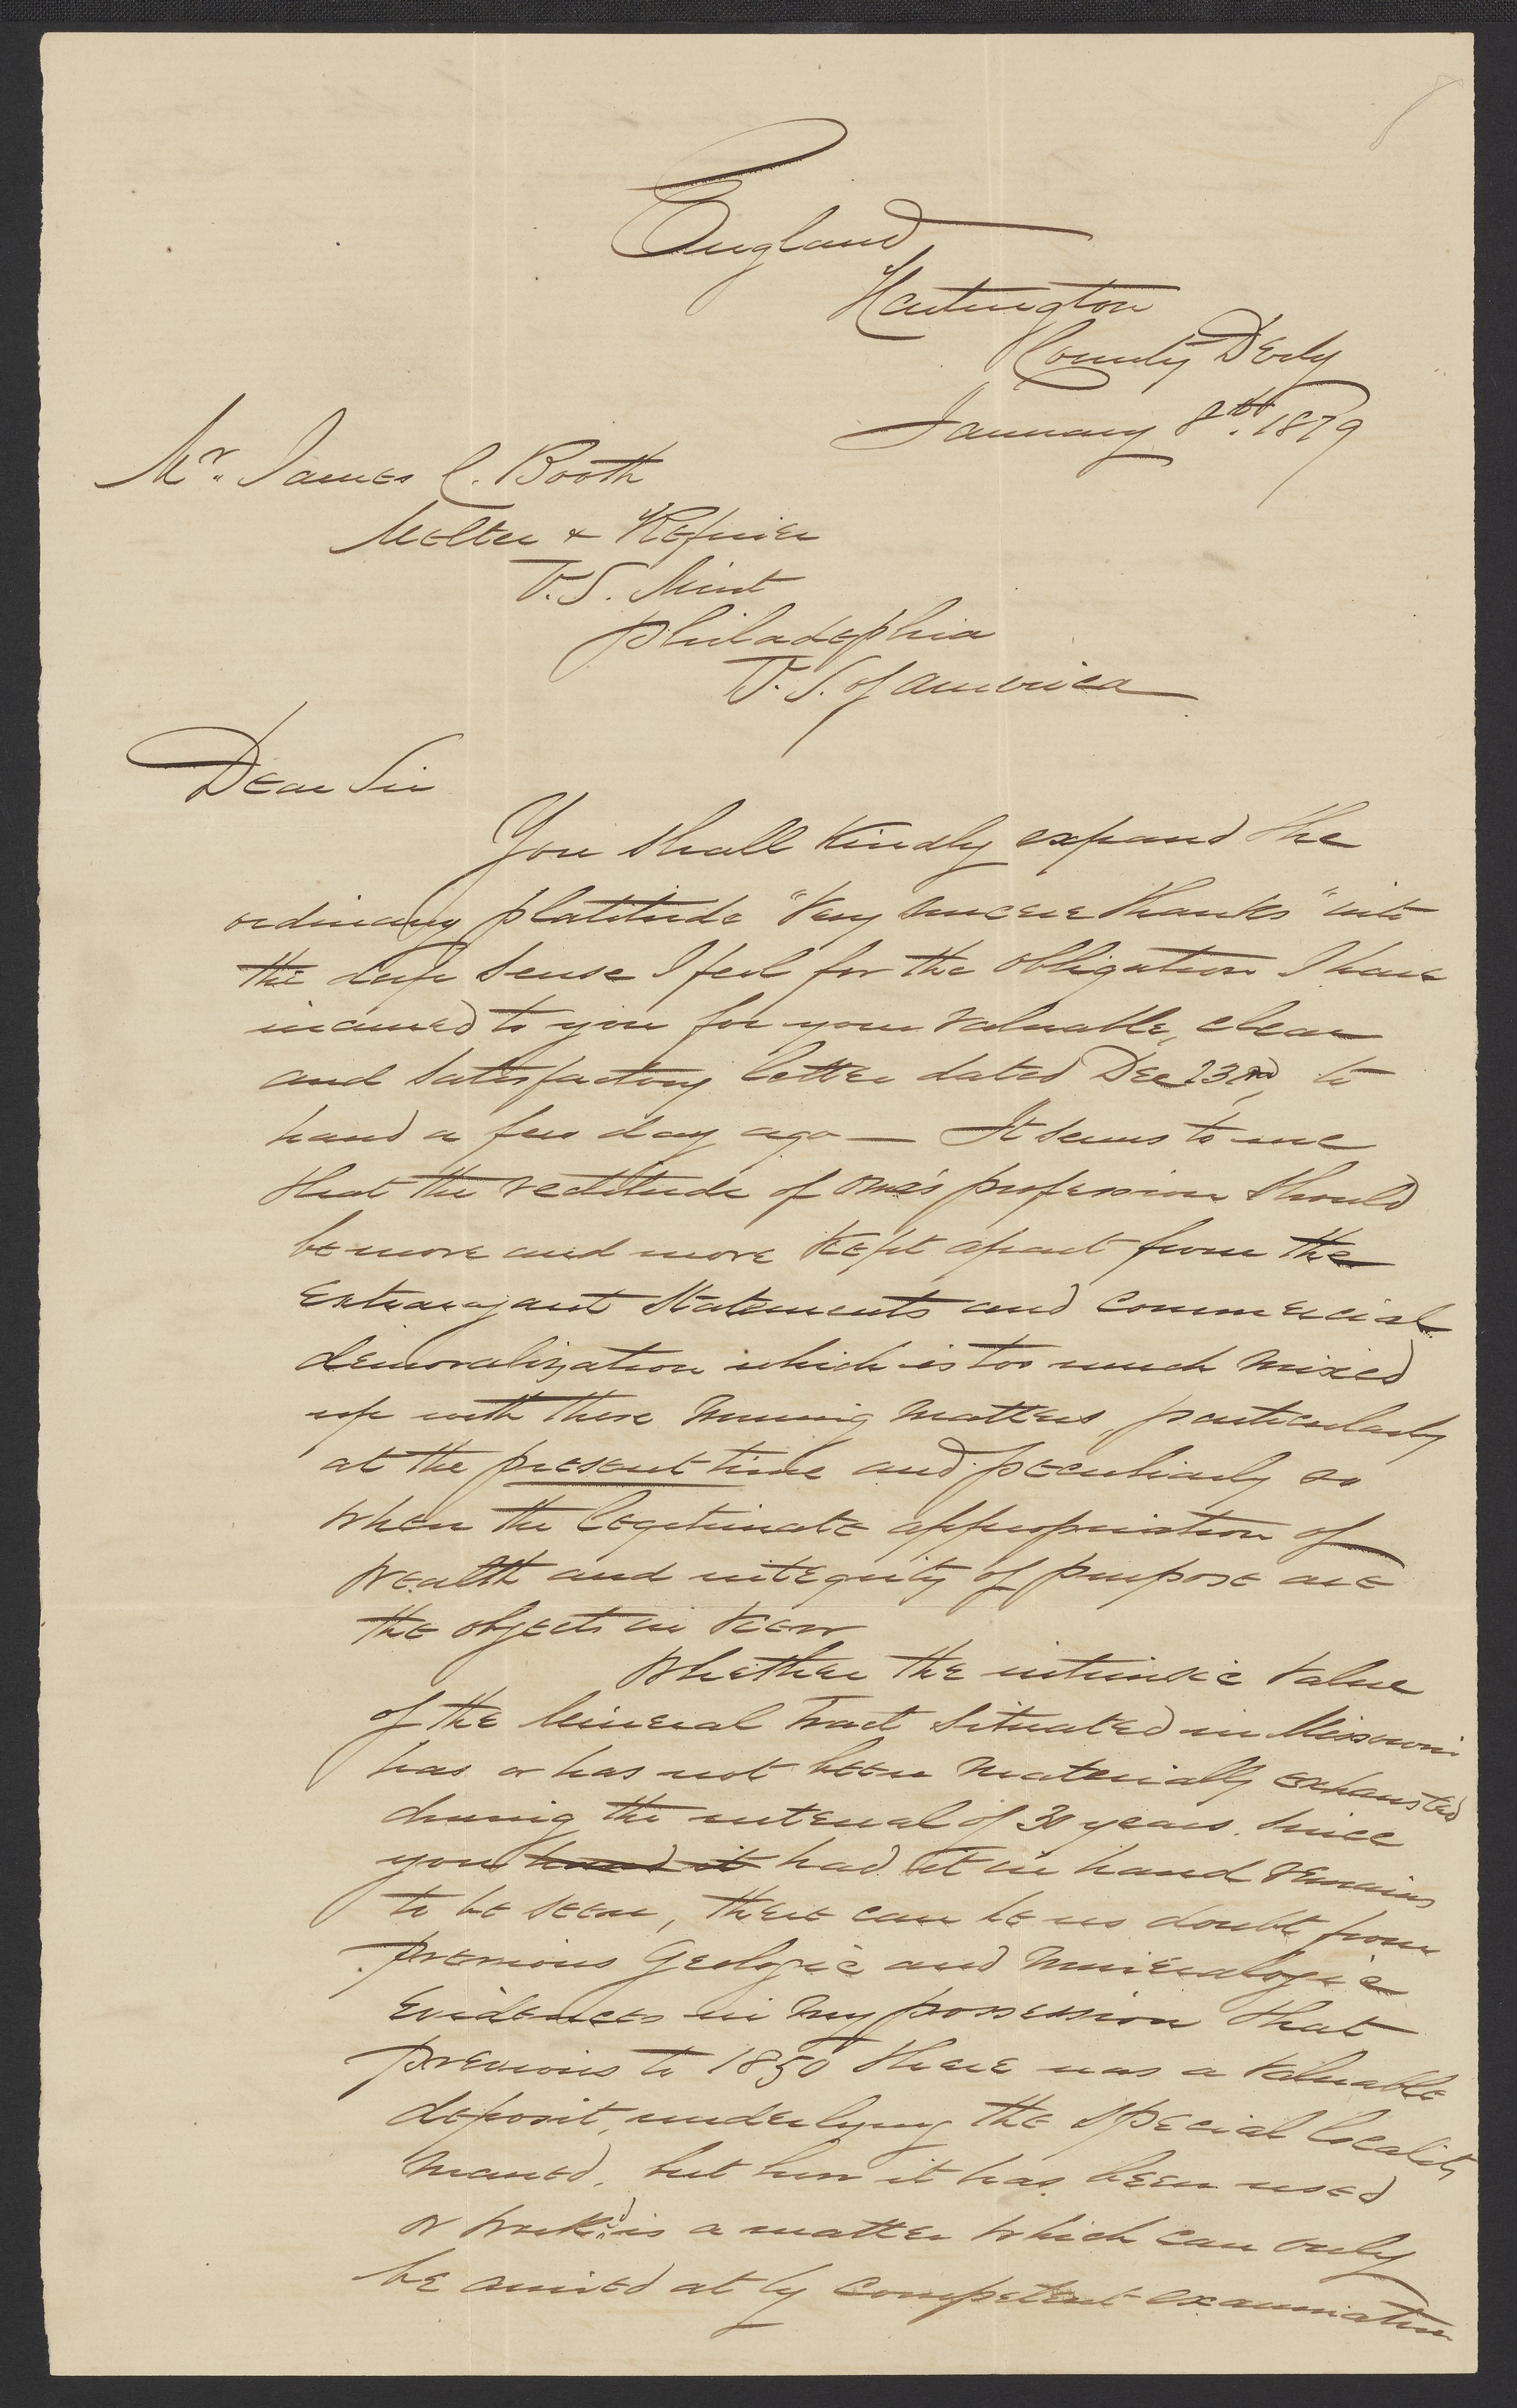 England
Hartington
County Derby
January 8th. 1879
Mr. James C. Booth
Melter & Refiner
U.S. Mint
Philadephia
U.S. of America
Dear Sir
You shall kindly expand the
ordinary platitude "Very sincere thanks" into
the deep sense I feel for the obligation I have
incurred to you for your valuable, clear
and satisfactory letter dated Dec 23rd, to
hand a few day ago — It seems to me
that the rectitude of one's profession should
be more and more kept apart from the
extravagant statements and commercial
demoralization which is too much mixed
up with these mining matters, particularly
at the present time and peculiarly so
when the legitimate appropriation of
wealth and integrity of purpose are
the objects in view
Whether the intrinsic value
of the Mineral Tract situated in Missouri
has or has not been materially exhausted
during the interval of 30 years since
you hand it had it in hand remains
to be seen, there can be no doubt from
previous Geologic and Mineralogic
evidences in my possession that
previous to 1850 there was a valuable
deposit, underlying the special locality
named, but how it has been used
or work'd is a matter which can only
be arrived at by competent examination